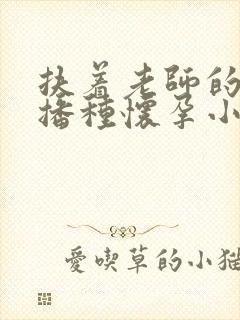 扶着老師的
播種懷孕小
愛喫草的小猫